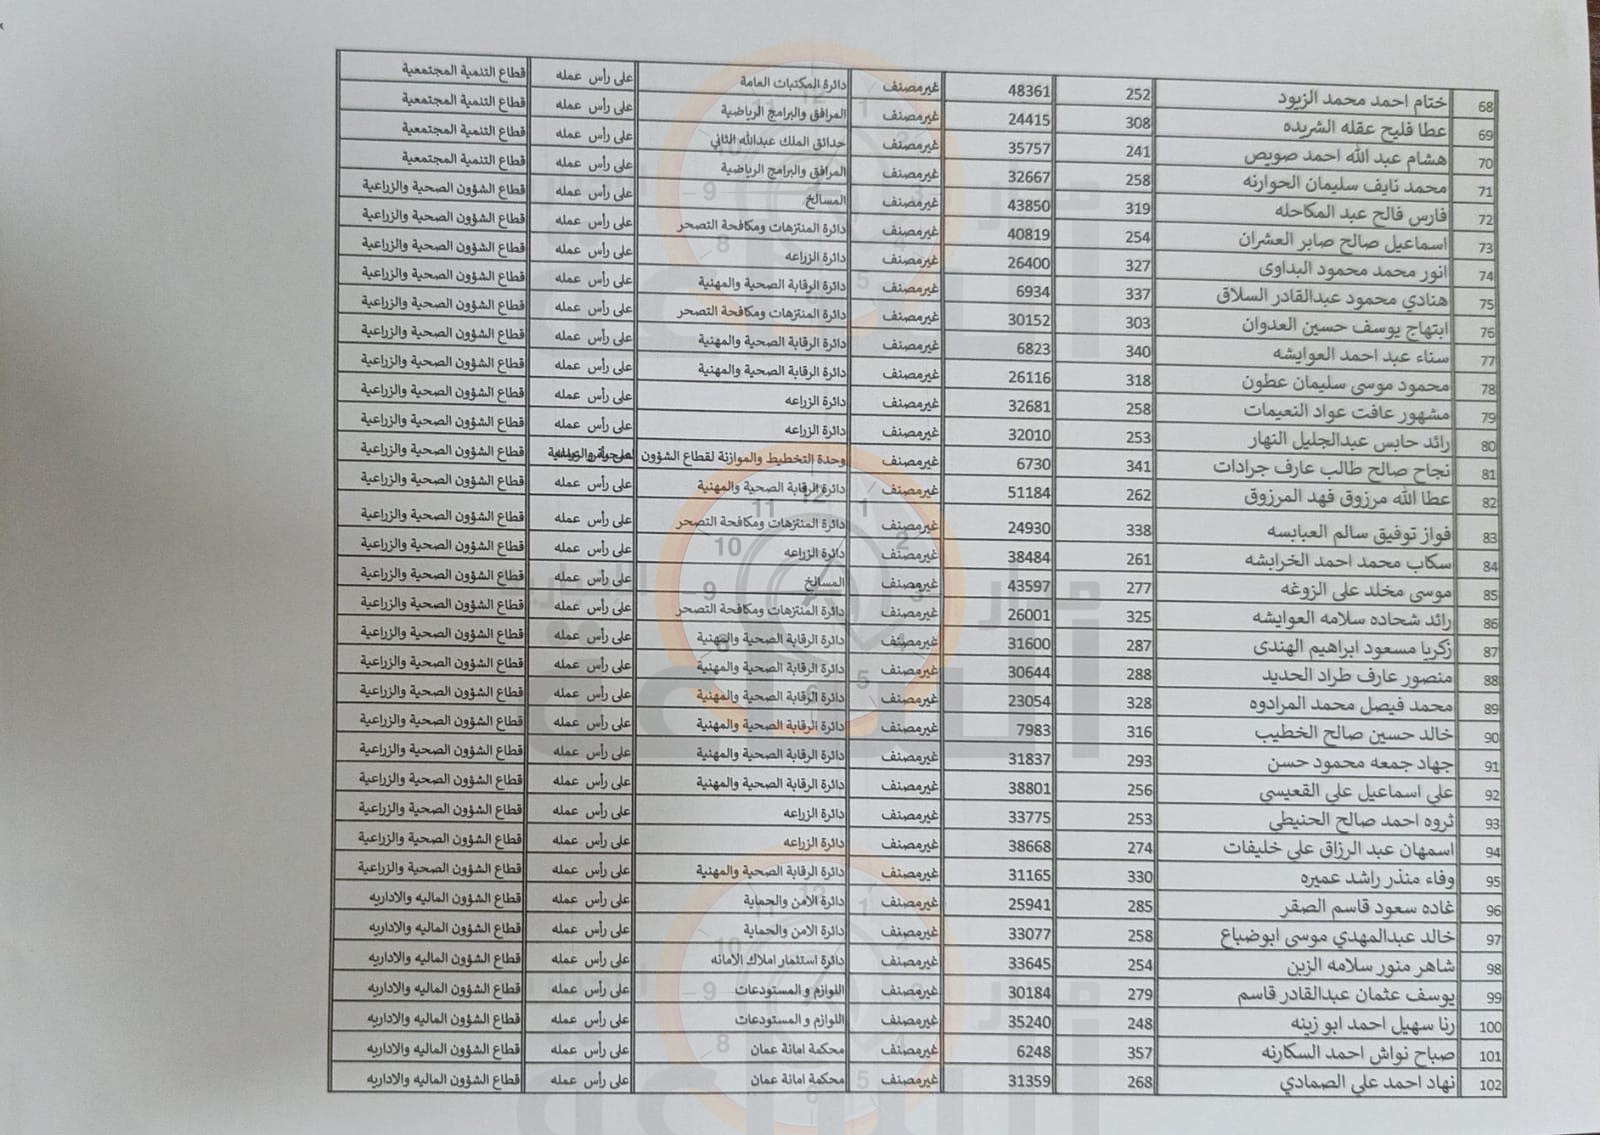 68 ختام احمد محمد الزيود 252 48361 غيرمصنف دائرة المكتبات العامة على رأس عمله قطاع التنمية المجتمعية
69 عطا فليح عقله الشريده 308 24415 غيرمصنف المرافق والبرامج الرياضية على رأس عمله قطاع التنمية المجتمعية
70 هشام عبد الله احمد صويص 241 35757 غيرمصنف حدائق الملك عبدالله الثاني على رأس عمله قطاع التنمية المجتمعية
71 محمد نايف سليمان الحوارنه 258 32667 غيرمصنف المرافق والبرامج الرياضية على رأس عمله قطاع التنمية المجتمعية
72 فارس فالح عبد المكاحله 319 43850 غيرمصنف المسالخ على رأس عمله قطاع الشؤون الصحية والزراعية
73 اسماعيل صالح صابر العشران 254 40819 غيرمصنف دائرة المنتزهات ومكافحة التصحر على رأس عمله قطاع الشؤون الصحية والزراعية
74 انور محمد محمود البداوى 327 26400 غيرمصنف دائرة الزراعه على رأس عمله قطاع الشؤون الصحية والزراعية
75 هنادي محمود عبدالقادر السلاق 337 6934 غيرمصنف دائرة الرقابة الصحية والمهنية على رأس عمله قطاع الشؤون الصحية والزراعية
76 ابتهاج يوسف حسين العدوان 303 30152 غيرمصنف دائرة المنتزهات ومكافحة التصحر على رأس عمله قطاع الشؤون الصحية والزراعية
77 سناء عبد احمد العوايشه 340 6823 غيرمصنف دائرة الرقابة الصحية والمهنية على رأس عمله قطاع الشؤون الصحية والزراعية
78 محمود موسى سليمان عطون 318 26116 غيرمصنف دائرة الرقابة الصحية والمهنية على رأس عمله قطاع الشؤون الصحية والزراعية
79 مشهور عافت عواد النعيمات 258 32681 غيرمصنف دائرة الزراعه على رأس عمله قطاع الشؤون الصحية والزراعية
80 رائد حابس عبدالجليل النهار 253 32010 غيرمصنف دائرة الزراعه على رأس عمله قطاع الشؤون الصحية والزراعية
81 نجاح صالح طالب عارف جرادات 341 6730 غيرمصنف وحدة التخطيط والموازنة لقطاع الشؤون قطاع الشؤون الصحية والزراعية
82 عطا الله مرزوق فهد المرزوق 262 51184 غيرمصنف دائرة الرقابة الصحية والمهنية على رأس عمله قطاع الشؤون الصحية والزراعية
83 فواز توفيق سالم العبابسه 338 24930 غيرمصنف دائرة المنتزهات ومكافحة التصحر على رأس عمله قطاع الشؤون الصحية والزراعية
84 سكاب محمد احمد الخرابشه 261 38484 غيرمصنف دائرة الزراعه على رأس عمله قطاع الشؤون الصحية والزراعية
85 موسى مخلد على الزوغه 277 43597 غيرمصنف المسالخ على رأس عمله قطاع الشؤون الصحية والزراعية
86 رائد شحاده سلامه العوايشه 325 26001 غيرمصنف دائرة المنتزهات ومكافحة التصحر على رأس عمله قطاع الشؤون الصحية والزراعية
87 زكريا مسعود ابراهيم الهندى 287 31600 غيرمصنف دائرة الرقابة الصحية والمهنية على رأس عمله قطاع الشؤون الصحية والزراعية
88 منصور عارف طراد الحديد 288 30644 غيرمصنف دائرة الرقابة الصحية والمهنية على رأس عمله قطاع الشؤون الصحية والزراعية
89 محمد فيصل محمد المرادوه 328 23054 غيرمصنف دائرة الرقابة الصحية والمهنية على رأس عمله قطاع الشؤون الصحية والزراعية
90 خالد حسين صالح الخطيب 316 7983 غيرمصنف دائرة الرقابة الصحية والمهنية على رأس عمله قطاع الشؤون الصحية والزراعية
91 جهاد جمعه محمود حسن 293 31837 غيرمصنف دائرة الرقابة الصحية والمهنية على رأس عمله قطاع الشؤون الصحية والزراعية
92 علي اسماعيل علي القعيسي 256 38801 غيرمصنف دائرة الرقابة الصحية والمهنية على رأس عمله قطاع الشؤون الصحية والزراعية
93 ثروه احمد صالح الحنيطي 253 33775 غيرمصنف دائرة الزراعه على رأس عمله قطاع الشؤون الصحية والزراعية
94 اسمهان عبد الرزاق علي خليفات 274 38668 غيرمصنف دائرة الزراعه على رأس عمله قطاع الشؤون الصحية والزراعية
95 وفاء منذر راشد عميره 330 31165 غيرمصنف دائرة الرقابة الصحية والمهنية على رأس عمله قطاع الشؤون الصحية والزراعية
96 غاده سعود قاسم الصقر 285 25941 غيرمصنف دائرة الامن والحماية على رأس عمله قطاع الشؤون الماليه والاداريه
97 خالد عبدالمهدي موسى ابوضباع 258 33077 غيرمصنف دائرة الامن والحماية على رأس عمله قطاع الشؤون الماليه والاداريه
98 شاهر منور سلامه الزبن 254 33645 غيرمصنف دائرة استثمار املاك الامانه على رأس عمله قطاع الشؤون الماليه والاداريه
99 يوسف عثمان عبدالقادر قاسم 279 30184 غيرمصنف اللوازم و المستودعات على رأس عمله قطاع الشؤون الماليه والاداريه
100 رنا سهيل احمد ابو زينه 248 35240 غيرمصنف اللوازم و المستودعات على رأس عمله قطاع الشؤون الماليه والاداريه
101 صباح نواش احمد السكارنه 357 6248 غيرمصنف محكمة امانة عمان على رأس عمله قطاع الشؤون الماليه والاداريه
102 نهاد احمد علي الصمادي 268 31359 غيرمصنف محكمة امانة عمان على رأس عمله قطاع الشؤون الماليه والاداريه